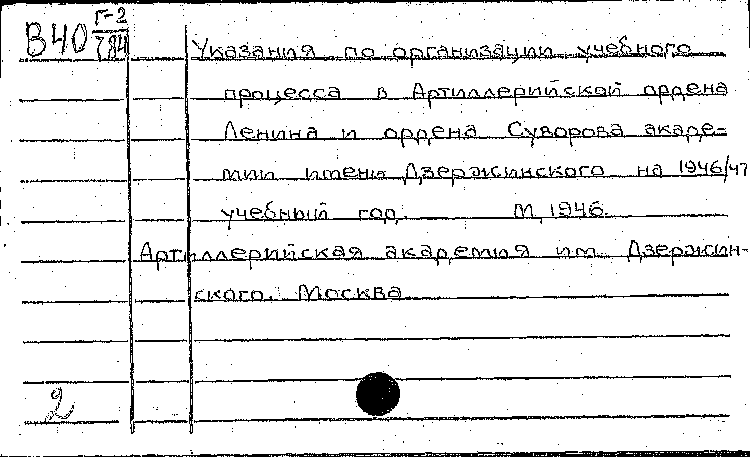 В40 Г-2/784
Указания по организации учебного
процесса в Артиллерийской ордена
Ленина и ордена Суворова акаде=
мии имени Дзержинского на 1946/47
учебный год. М, 1946.
Артиллерийская академия им. Дзержин-
ского. Москва
2